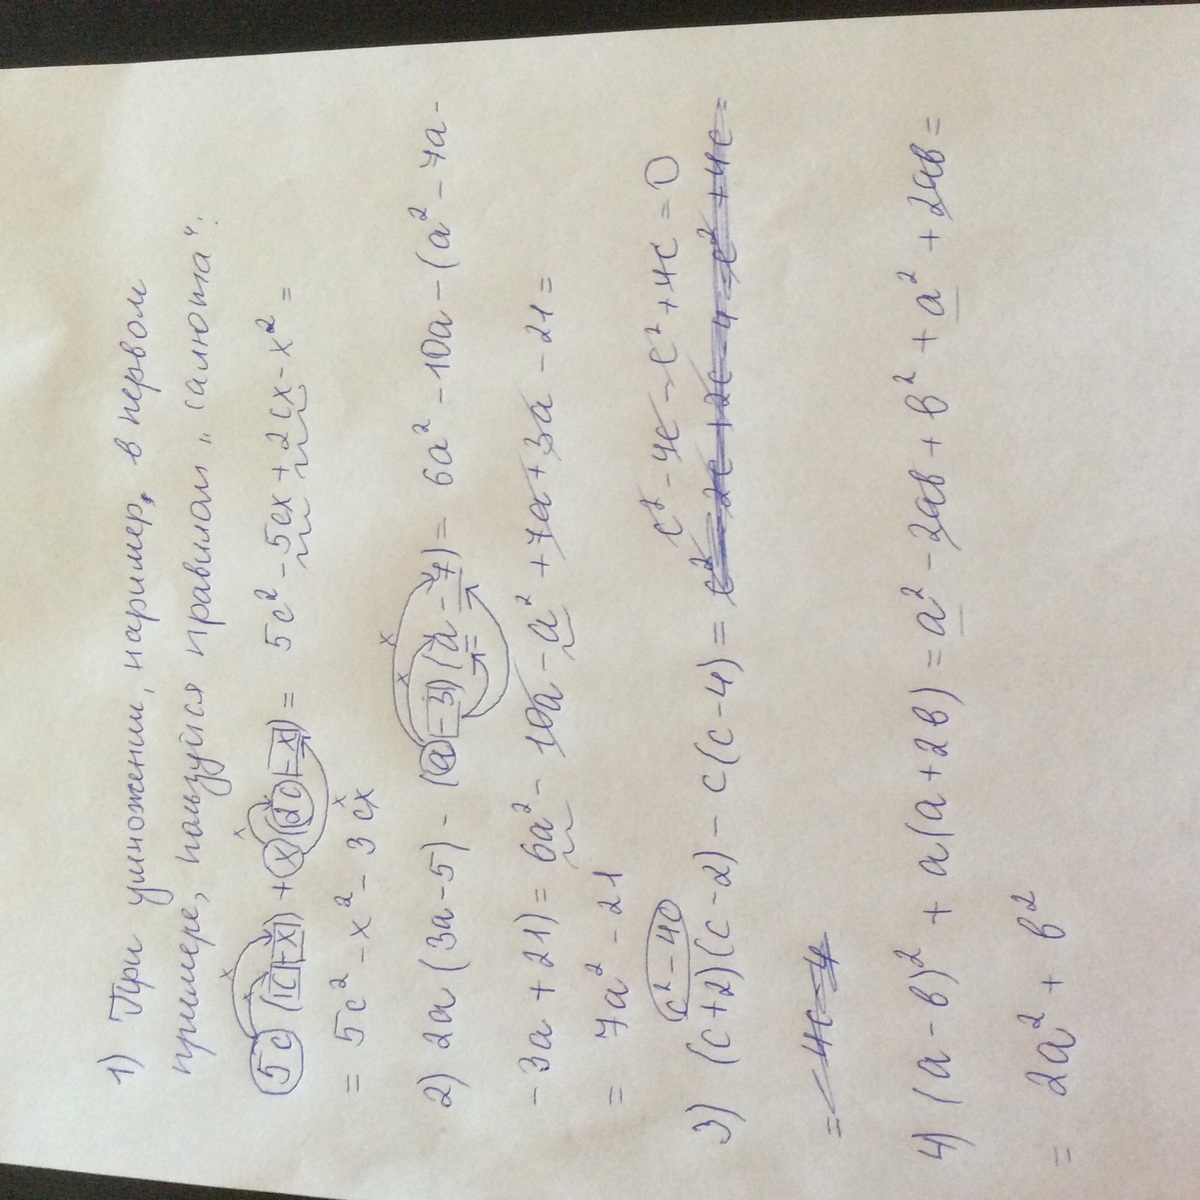 1) При умножении, наример, в первом
примере, пользуйся правилом „салюта“:
5c(1c-x)+x(2c-x)= 5c²-5cx+2cx-x²=
= 5c²-x²-3cx
2) 2a(3a-5)-(a-3)(a-7)= 6a²-10a-(a²-7a-
-3a+21)= 6a²-10a-a²+7a+3a-21=
= 7a²-21
c²-40
3) (c+2)(c-2)-c(c-4)= c²-4c-c²+4c=0
c²-2c+2c-4-c²+4c=
=4c-4
4) (a-b)²+a(a+2b)=a²-2ab+b²+a²+2ab=
= 2a²+b²